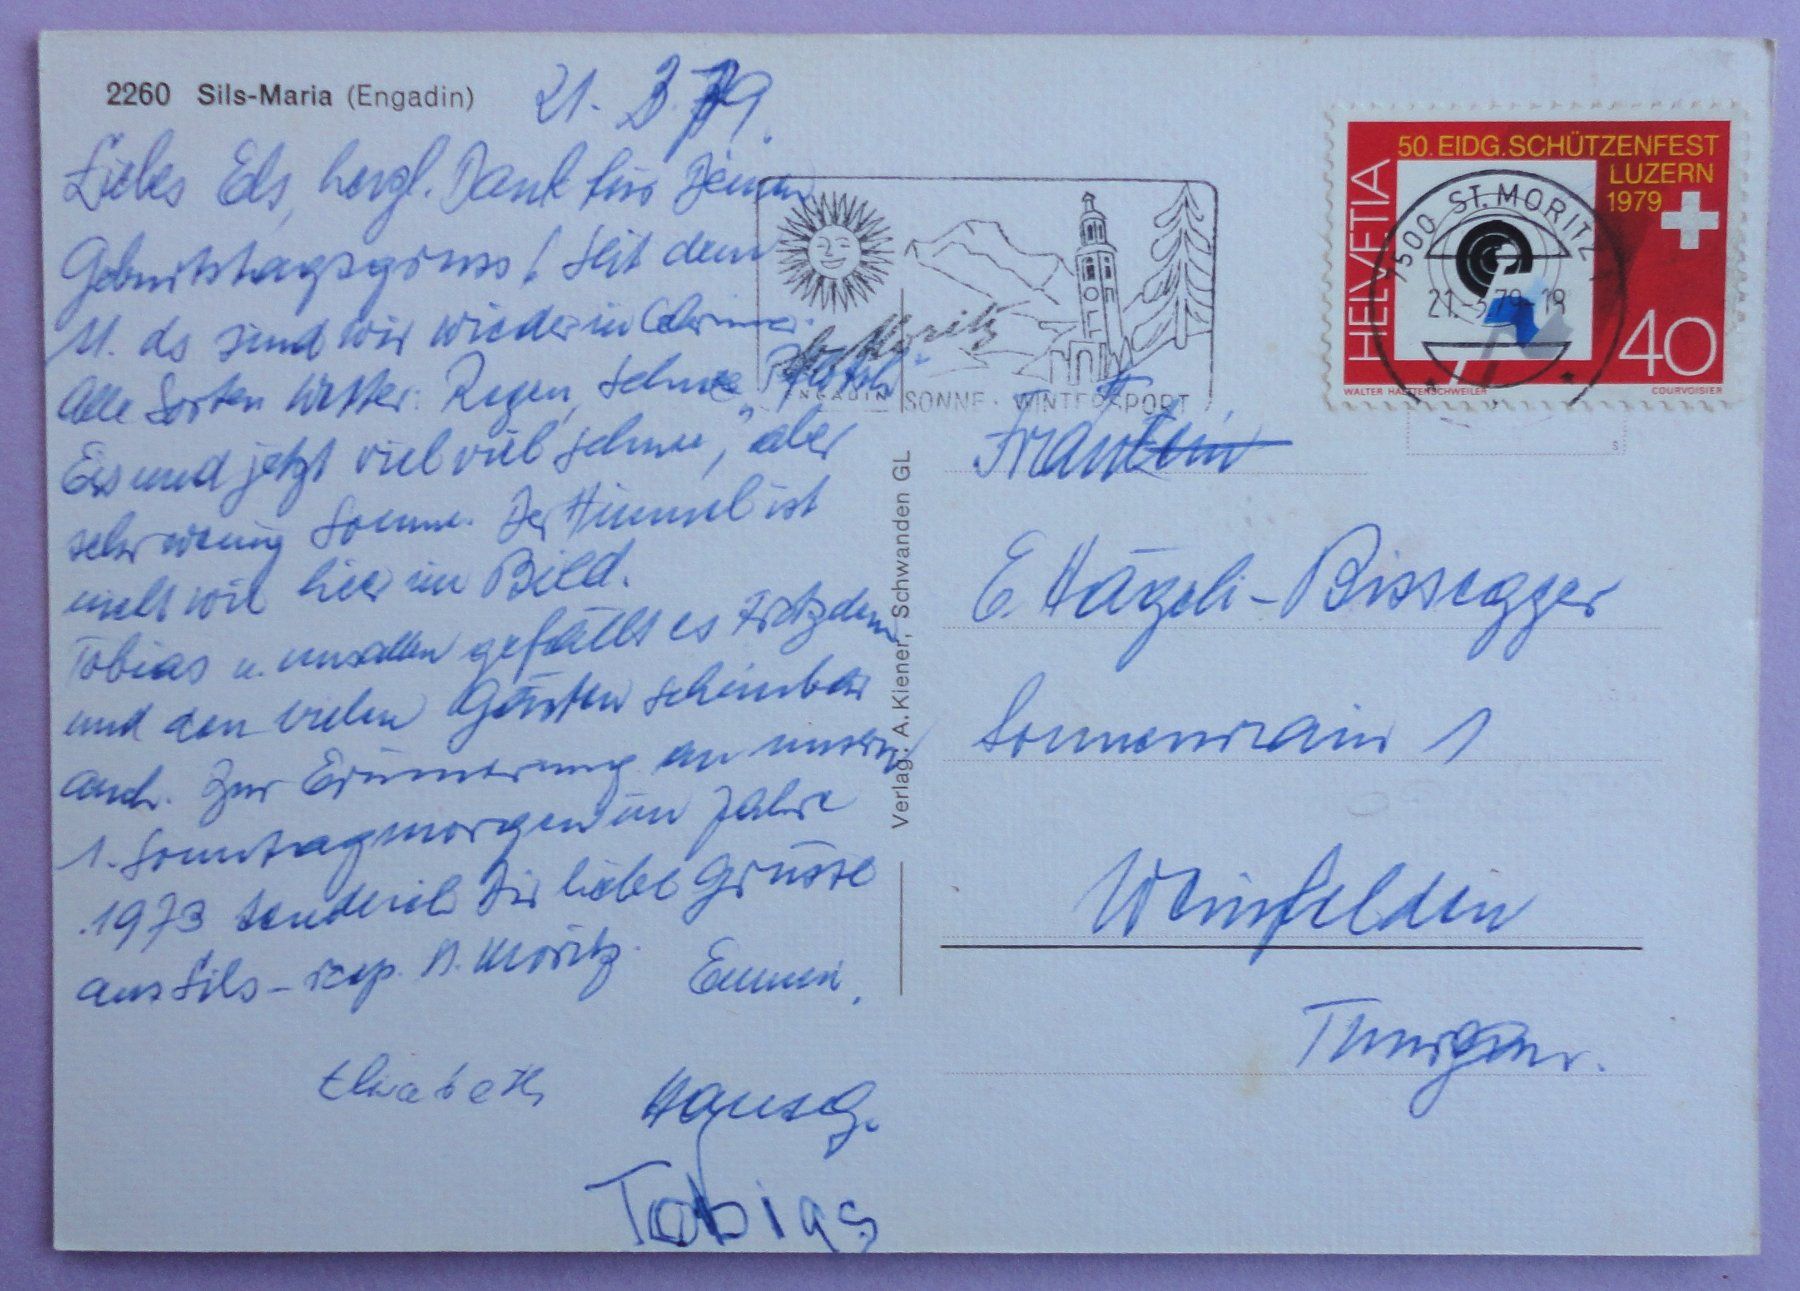 2260 Sils-Maria (Engadin)
21. 3. 79.
Liebes Els, herzl. Dank für Deinen
Geburtstagsgruss! Seit dem
11. ds sind wir wieder in
Alle Sorten Wetter: Regen, Schnee "Pflotsch"
Eis und jetzt viel viel Schnee, aber
sehr wenig Sonne. Der Himmel ist
nicht wie hier im Bild.
Tobias u. uns allen gefällt es trotzdem
und den vielen Gästen scheinbar
auch. Zur Erinnerung an unsern
1. Sonntagmorgen im Jahre
1973 sende ich Dir liebe Grüsse
aus Sils - resp. St. Moritz.
Emmi.
Elisabeth
Hansg.
Tobias
St. Moritz
ENGADIN SONNE · WINTERSPORT
Verlag: A. Kiener, Schwanden GL
50. EIDG. SCHÜTZENFEST
LUZERN
1979
HELVETIA
40
WALTER HAETTENSCHWEILER COURVOISIER
7500 ST. MORITZ 1
21.-3.79-18
S
Fräulein
E. Hägeli-Bissegger
Sonnenrain 1
Weinfelden
Thurgau.